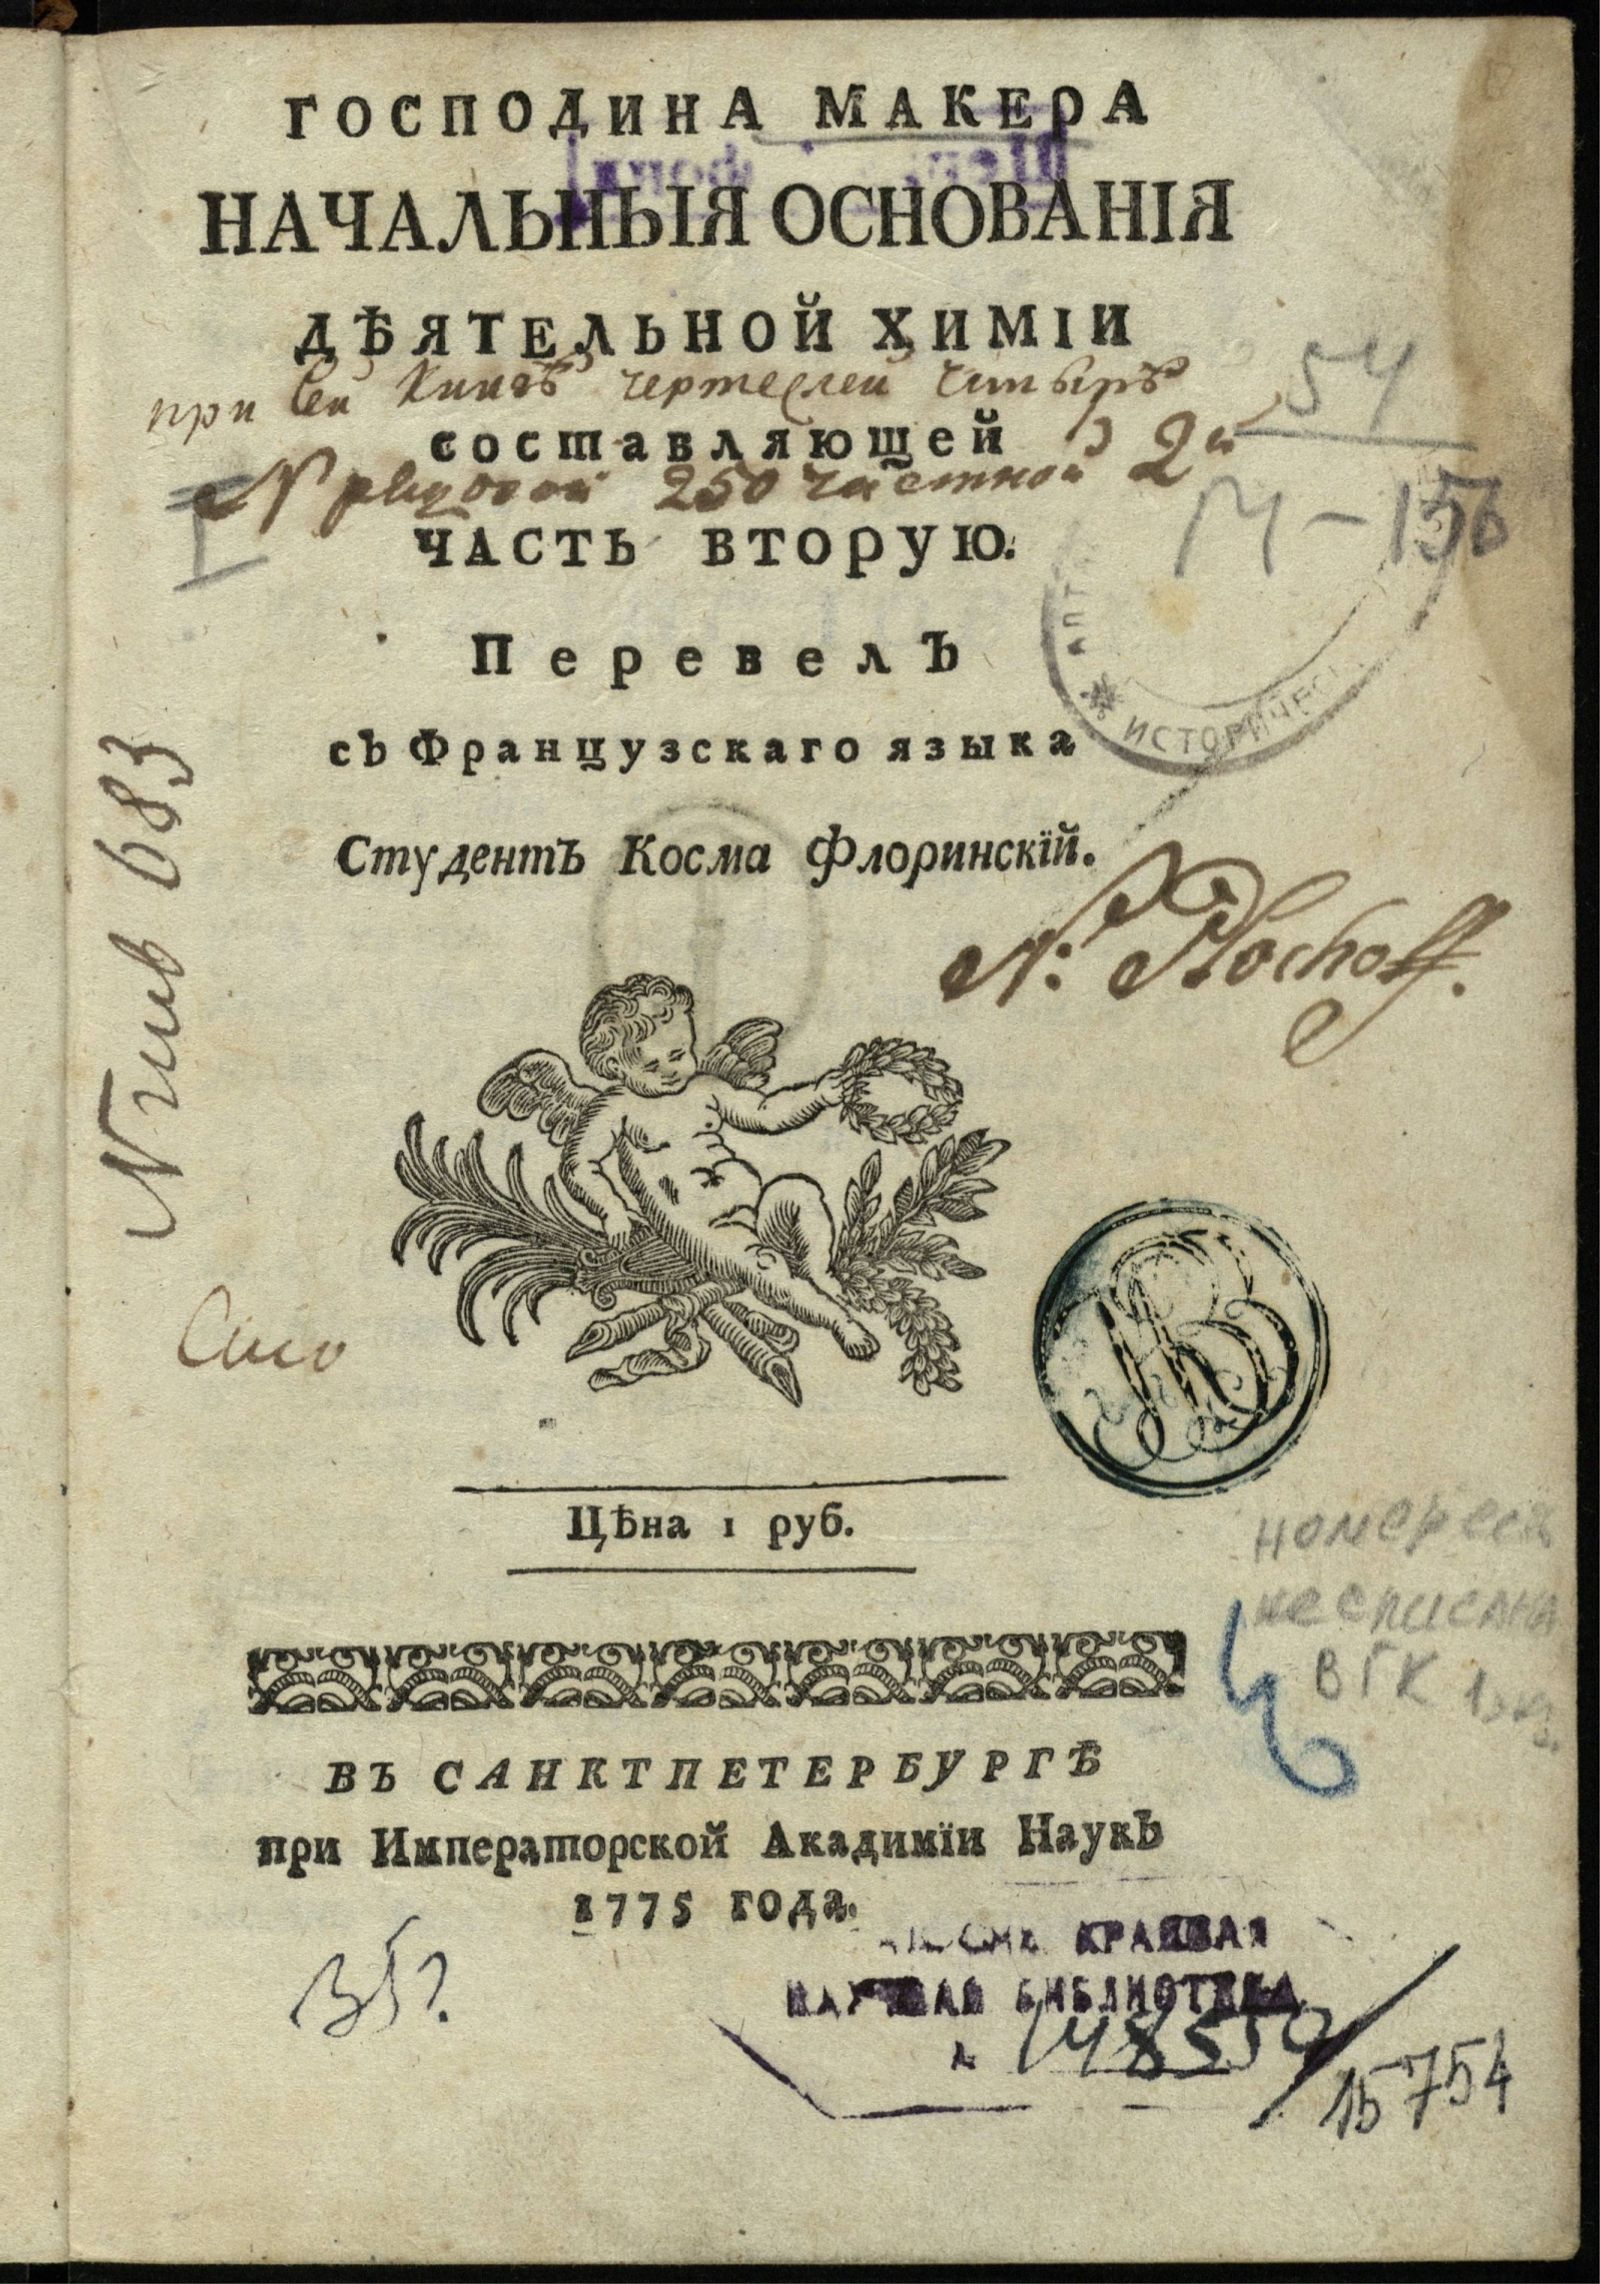 ГОСПОДИНА МАКЕРА
НАЧАЛЬНЫЯ ОСНОВАНІЯ
ДѢЯТЕЛЬНОЙ ХИМІИ
при сей книгѣ
составляющей
250 2й
ЧАСТЬ ВТОРУЮ.
54
М-156
ИСТОРИЧЕС
Перевелъ
съ Французскаго языка
Студентъ Косма Флоринскїй.
683
Цѣна 1 руб.
не списана
в ГК
ВЪ САНКТПЕТЕРБУРГѢ
при Императорской Акадимїи Наукъ
1775 года.
КРАЕВАЯ
НАУЧНАЯ БИБЛИОТЕКА
15754